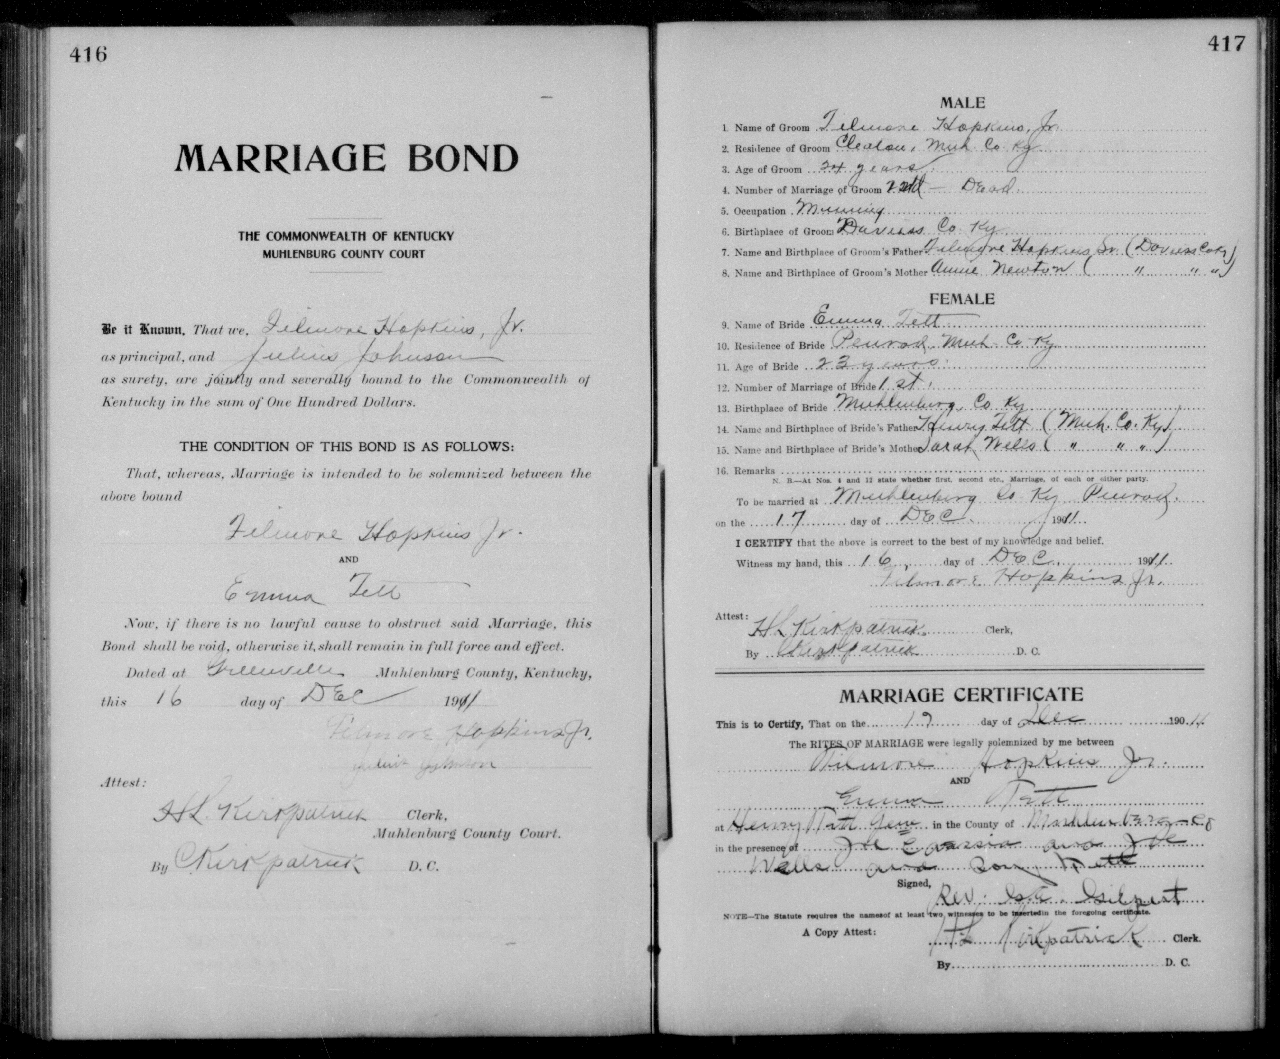 416
MARRIAGE BOND
THE COMMONWEALTH OF KENTUCKY
MUHLENBURG COUNTY COURT
Be it Known, That we, Filmore Hopkins, Jr.
as principal, and Julius Johnson
as surety, are jointly and severally bound to the Commonwealth of
Kentucky in the sum of One Hundred Dollars.
THE CONDITION OF THIS BOND IS AS FOLLOWS:
That, whereas, Marriage is intended to be solemnized between the
above bound
Filmore Hopkins Jr.
AND
Emma Tett
Now, if there is no lawful cause to obstruct said Marriage, this
Bond shall be void, otherwise it shall remain in full force and effect.
Dated at Greenville Muhlenburg County, Kentucky,
this 16 day of DEC 1911
Filmore Hopkins Jr.
Julius Johnson
Attest:
H L Kirkpatrick Clerk,
Muhlenburg County Court.
By C Kirkpatrick D. C.
417
MALE
1. Name of Groom Filmore Hopkins, Jr.
2. Residence of Groom Cleaton, Muh Co Ky
3. Age of Groom 24 years.
4. Number of Marriage of Groom 2nd - Dead
5. Occupation Mining
6. Birthplace of Groom Daviess Co Ky
7. Name and Birthplace of Groom's Father Filmore Hopkins Sr. (Daviess Co Ky)
8. Name and Birthplace of Groom's Mother Annie Newton ( " " " )
FEMALE
9. Name of Bride Emma Tett
10. Residence of Bride Penrod, Muh. Co. Ky
11. Age of Bride 23 years.
12. Number of Marriage of Bride 1st.
13. Birthplace of Bride Muhlenburg Co Ky
14. Name and Birthplace of Bride's Father Henry Tett (Muh. Co. Ky)
15. Name and Birthplace of Bride's Mother Sarah Wells ( " " " )
16. Remarks
N. B.—At Nos. 4 and 12 state whether first, second etc., Marriage, of each or either party.
To be married at Muhlenburg Co Ky Penrod.
on the 17 day of DEC. 1911.
I CERTIFY that the above is correct to the best of my knowledge and belief.
Witness my hand, this 16, day of DEC. 1911.
Filmore Hopkins Jr.
Attest:
H L Kirkpatrick Clerk,
By C Kirkpatrick D. C.
MARRIAGE CERTIFICATE
This is to Certify, That on the 17 day of Dec 190 11
The RITES OF MARRIAGE were legally solemnized by me between
Filmore Hopkins Jr.
AND
Emma Tett
at Henry in the County of
in the presence of and Joe
Wells and
Signed,
Rev. Gilpert
NOTE—The Statute requires the namesof at least two witnesses to be insertedin the foregoing certificate.
A Copy Attest: H L Kirkpatrick Clerk.
By D. C.